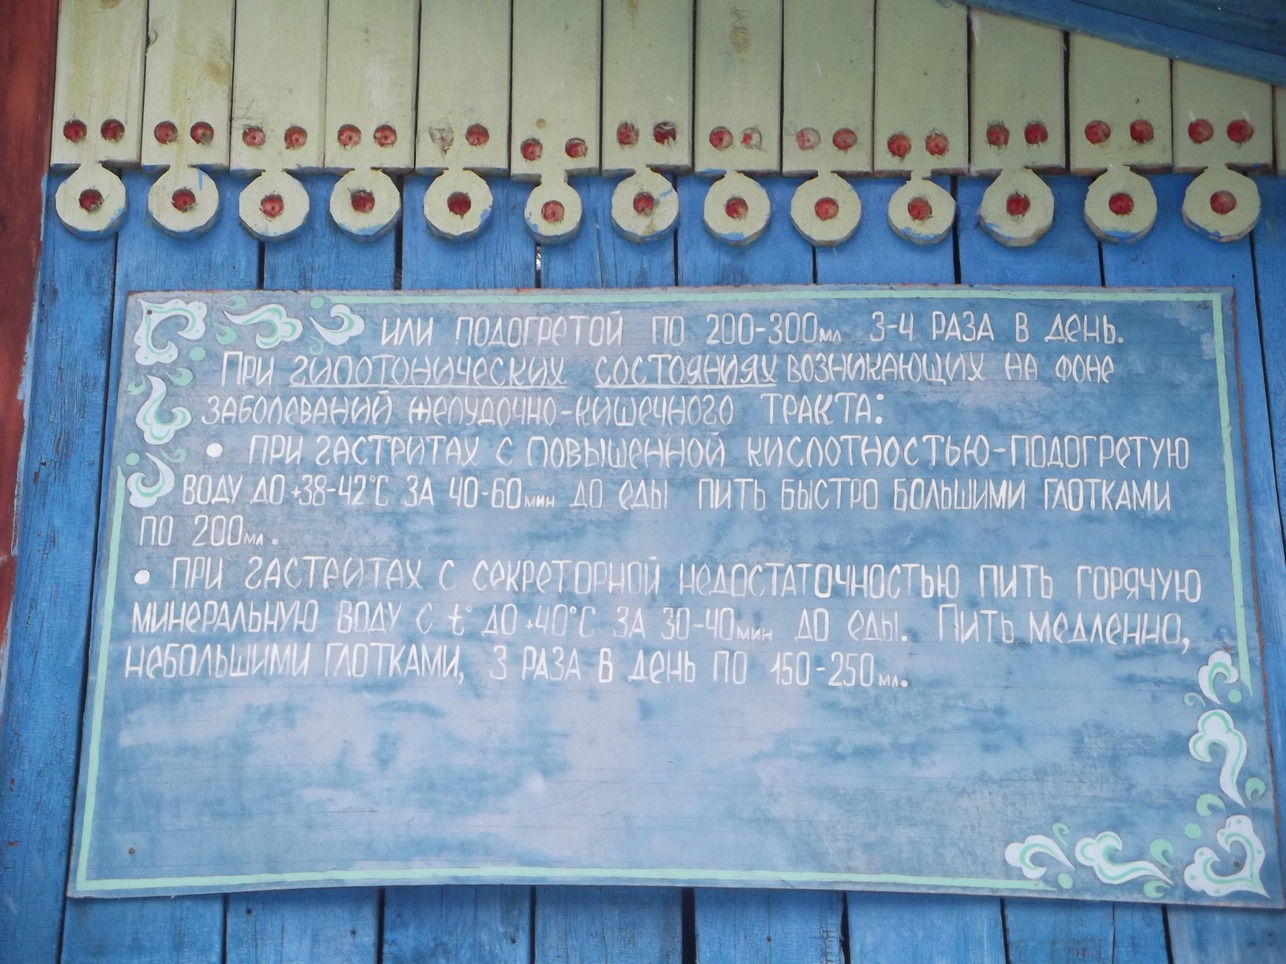 ИЛИ ПОДОГРЕТОЙ ПО 200-300мл 3-4 РАЗА В ДЕНЬ.
ПРИ ГИПОТОНИЧЕСКИХ СОСТОЯНИЯХ ВОЗНИКАЮЩИХ НА ФОНЕ
ЗАБОЛЕВАНИЙ ЖЕЛУДОЧНО-КИШЕЧНОГО ТРАКТА:
• ПРИ ГАСТРИТАХ С ПОВЫШЕННОЙ КИСЛОТНОСТЬЮ-ПОДОГРЕТУЮ
ВОДУ ДО +38-42°С ЗА 40-60мин ДО ЕДЫ ПИТЬ БЫСТРО БОЛЬШИМИ ГЛОТКАМИ
ПО 200мл.
• ПРИ ГАСТРИТАХ С СЕКРЕТОРНОЙ НЕДОСТАТОЧНОСТЬЮ ПИТЬ ГОРЯЧУЮ
МИНЕРАЛЬНУЮ ВОДУ С t° ДО +40°С ЗА 30-40мин ДО ЕДЫ. ПИТЬ МЕДЛЕННО,
НЕБОЛЬШИМИ ГЛОТКАМИ, 3 РАЗА В ДЕНЬ ПО 150-250мл.